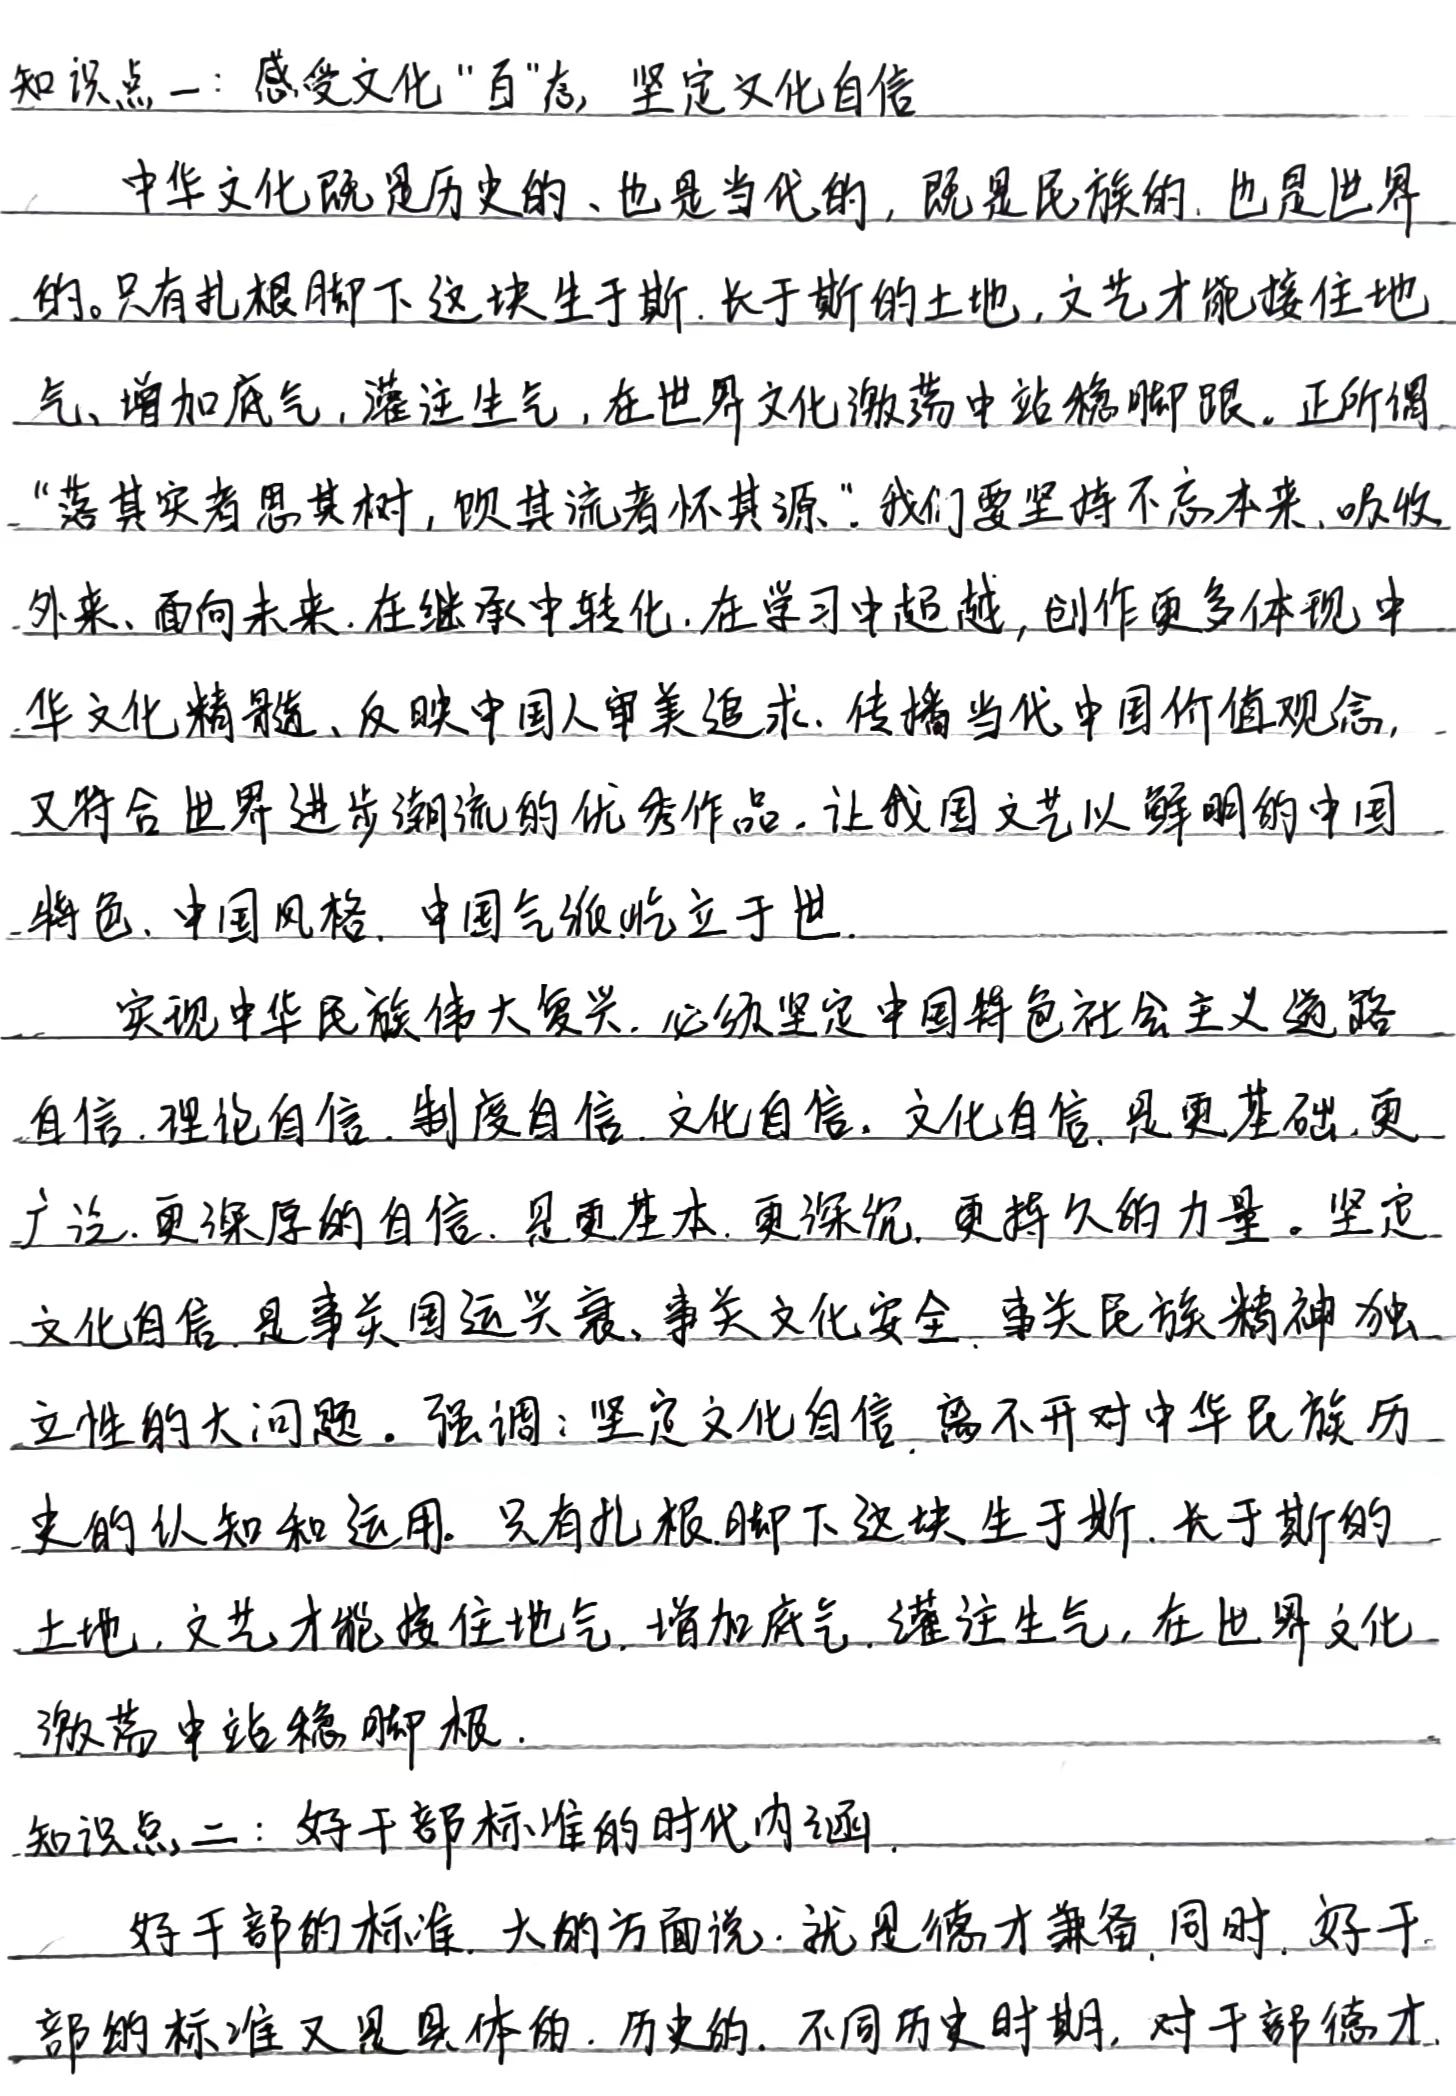 知识点一：感受文化“百”态，坚定文化自信
中华文化既是历史的、也是当代的，既是民族的、也是世界
的。只有扎根脚下这块生于斯、长于斯的土地，文艺才能接住地
气、增加底气，灌注生气，在世界文化激荡中站稳脚跟。正所谓
“落其实者思其树，饮其流者怀其源”。我们要坚持不忘本来、吸收
外来、面向未来、在继承中转化、在学习中超越，创作更多体现中
华文化精髓、反映中国人审美追求、传播当代中国价值观念，
又符合世界进步潮流的优秀作品，让我国文艺以鲜明的中国
特色、中国风格、中国气派屹立于世.
实现中华民族伟大复兴，必须坚定中国特色社会主义道路
自信、理论自信、制度自信、文化自信。文化自信，是更基础、更
广泛、更深厚的自信，是更基本、更深沉、更持久的力量。坚定
文化自信，是事关国运兴衰、事关文化安全、事关民族精神独
立性的大问题。强调：坚定文化自信，离不开对中华民族历
史的认知和运用。只有扎根脚下这块生于斯、长于斯的
土地，文艺才能接住地气、增加底气、灌注生气，在世界文化
激荡中站稳脚根.
知识点二：好干部标准的时代内涵.
好干部的标准，大的方面说，就是德才兼备，同时，好干
部的标准又是具体的、历史的，不同历史时期，对干部德才